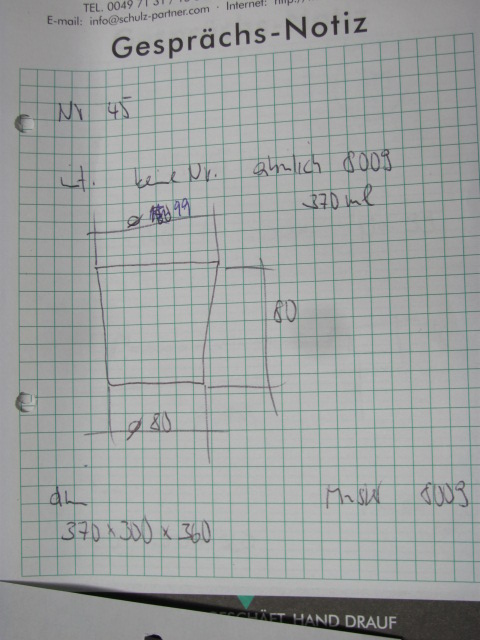 TEL. 0049 71
E-mail: info@schulz-partner.com · Internet: http://
Gesprächs-Notiz
Nr 45
int. keine Nr. ähnlich 8009
370 ml
ø 99
80
ø 80
8009
370 x 300 x 360
GESCHÄFT HAND DRAUF